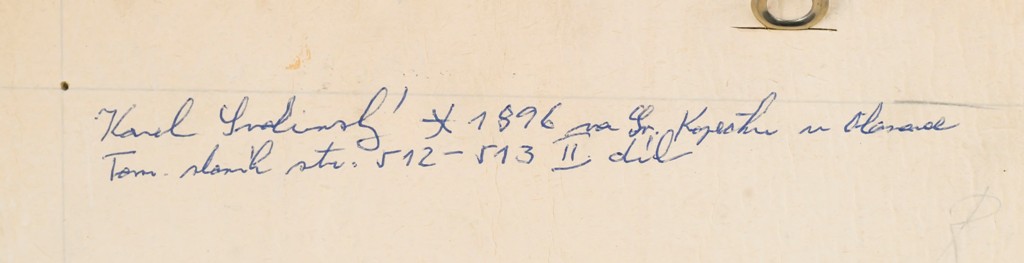 Karel Svolinský * 1896 na Sv. Kopečku u Olomouce
Tom. slovník str. 512-513 II. díl